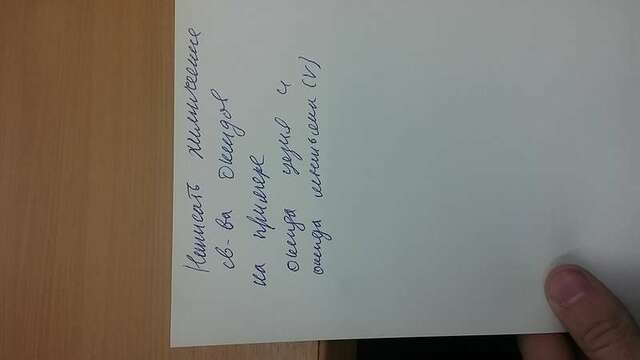 Написать химические
св-ва оксидов
на примере
оксида цезия и
оксида мышьяка (V)